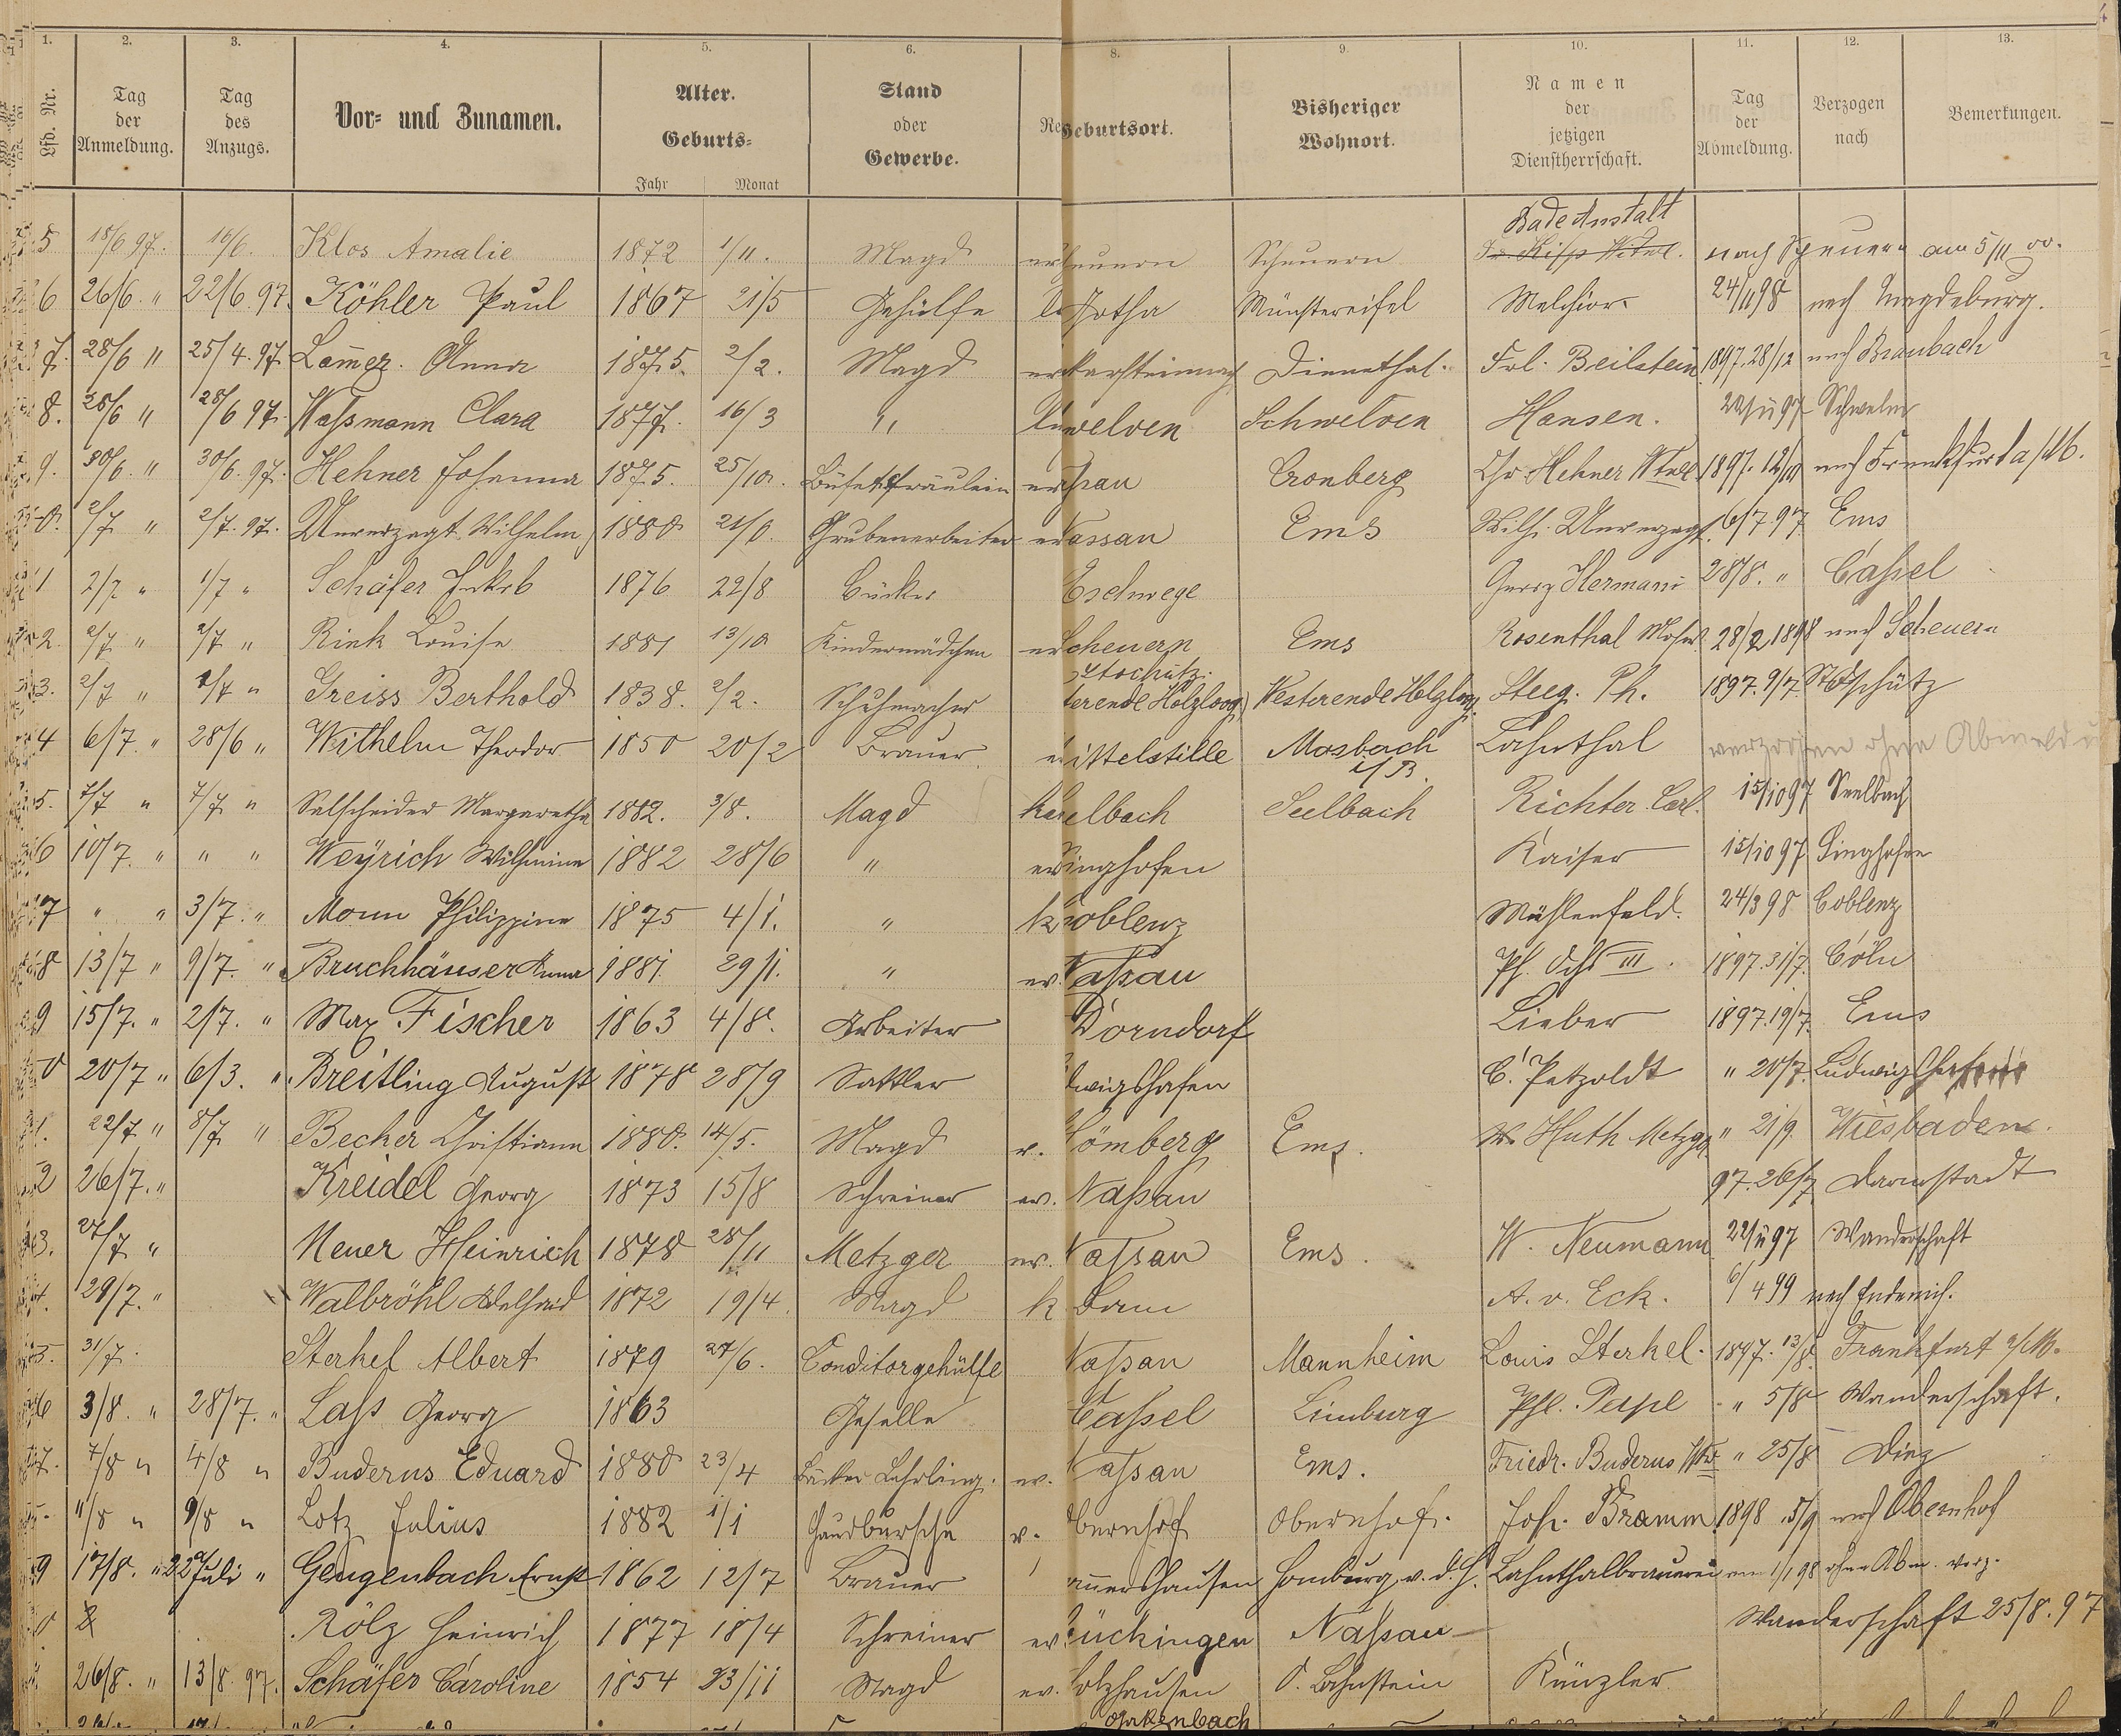 1. 2. 3. 4. 5. 6. 8. 9. 10. 11. 12. 13.
Lfd. Nr. Tag der Anmeldung. Tag des Anzugs. Vor- und Zunamen. Alter. Geburts- Jahr Monat Stand oder Gewerbe. Re Geburtsort. Bisheriger Wohnort. Namen der jetzigen Dienstherrschaft. Tag der Abmeldung. Verzogen nach Bemerkungen.
Bade Anstalt
5 18/6 97. 16/6. Klos Amalie 1872 1/11. Magd heuern Scheuern nach Scheuern am 5/11 00.
6 26/6. " 22/6. 97. Köhler Paul 1867 21/5 Gehülfe Gotha Münstereifel Melchior 24/11 98 nach Magdeburg.
7. 28/6 " 25/4. 97. Lam̄er. Anna 1875. 2/2. Magd Dienethal. Frl. Beilstein 1897. 28/12 nach Braubach
8. 28/6 " 28/6 97. Waßmann Clara 1877. 16/3 " welven Schwelven Hansen. Schwelm
9. 30/6. " 30/6. 97. Hehner Johanna 1875. 25/10. Büfettfräulein ßau Cronberg Chr Hehner Wwe. 1897. nach Frankfurt a/M.
0. 2/7 " 2/7. 97. Unverzagt Wilhelm 1880 21/6. Grubenarbeiter Nassau Ems Wilh. Unverzagt. 6/7. 97 Ems
1 2/7 " 1/7 " Schäfer Jakob 1876 22/8 Bäcker Eschwege Georg Hermani 28/8. " Caßel
2 2/7 " 2/7 " Rink Louise 1881 13/10 Kindermädchen Scheuern Ems Rosenthal 28/2 1898 nach Scheuern
3. 2/7 " 2/7 " Greiss Berthold 1838. 2/2. Schuhmacher Stochütz. terende Holzloog) Westerende Holzloog. Steeg. Ph. 1897. 9/7.
4 6/7. " 28/6 " Wilhelm Theodor 1850 20/2 Brauer ittelstille Mosbach i/B. Lahnthal verzogen ohne Abmeldu
5. 7/7 " 7/7 " Selscheider Margaretha 1882. 3/8. Magd elbach Seelbach Richter Carl. 15/10 97 Seelbach
6 10/7. " " " Weyrich Wilhmine 1882 28/6 " Singhofen Kaiser 15/10 97 Singhofen
7 " " 3/7. " Monn Philippine 1875 4/1. " k Coblenz Mühlenfeld. 24/3 98 Coblenz
8 13/7 " 9/7. " Bruchhäuser Anna 1881. 29/1. " ev. Naßau Ph. III. 1897. 31/7. Cöln
9 15/7. " 2/7. " Max Fischer 1863 4/8. Arbeiter Dorndorf Lieber 1897. 19/7. Ems
0 20/7 " 6/3. " Breitling August 1878 28/9 Sattler dwigshafen C. Petzoldt " 20/7. Ludwigshafen
1. 22/7 " 8/7 " Becker Christiann 1880. 14/5. Magd v. Hömberg Ems. W. Huth Metzger " 21/9. Wiesbaden.
2 26/7. " Kreidel Georg 1873 15/8 Schreiner ev. Naßau 97. 26/7 Darmstadt
3. 27/7 " Neuer Heinrich 1878 28/11 Metzger ev. Naßau Ems. W. Neumann 22/11 97 Wanderschaft
4. 29/7. " Walbröhl Adelheid 1872 19/4. Magd k Bonn A. v. Eck. 6/4 99 nach Endenich.
5. 31/7. Sterkel Albert 1879 27/6. Conditorgehülfe Naßau Mannheim Louis Sterkel. 1897. 13/8. Frankfurt a/M.
6 3/8. " 28/7. " Laß Georg 1863 Geselle Caßel Limburg " 5/8 Wanderschaft.
7. 7/8 " 4/8 " Buderus Eduard 1880 23/4 Bäcker Lehrling. ev. Naßau Ems. Friedr. Buderus Wwe " 25/8 Diez
11/8 " 9/8 " Lotz Julius 1882 1/1 Hausbursche v. bernhof Obernhof. Joh. Bramm 1898 5/9 nach Obernhof
9 17/8. " 22 Juli " Gengenbach Ernst 1862 12/7 Brauer Homburg v. d. H. Lahnthalbrauerei am 1/1 98 ohne Abm. verz.
0 Rölz Heinrich 1877 18/4 Schreiner ev. ückingen Naßau Wanderschaft 25/8. 97
26/8. " 13/8. 97. Schäfer Caroline 1854 23/11 Magd ev. olzhausen O. Lahnstein Künzler